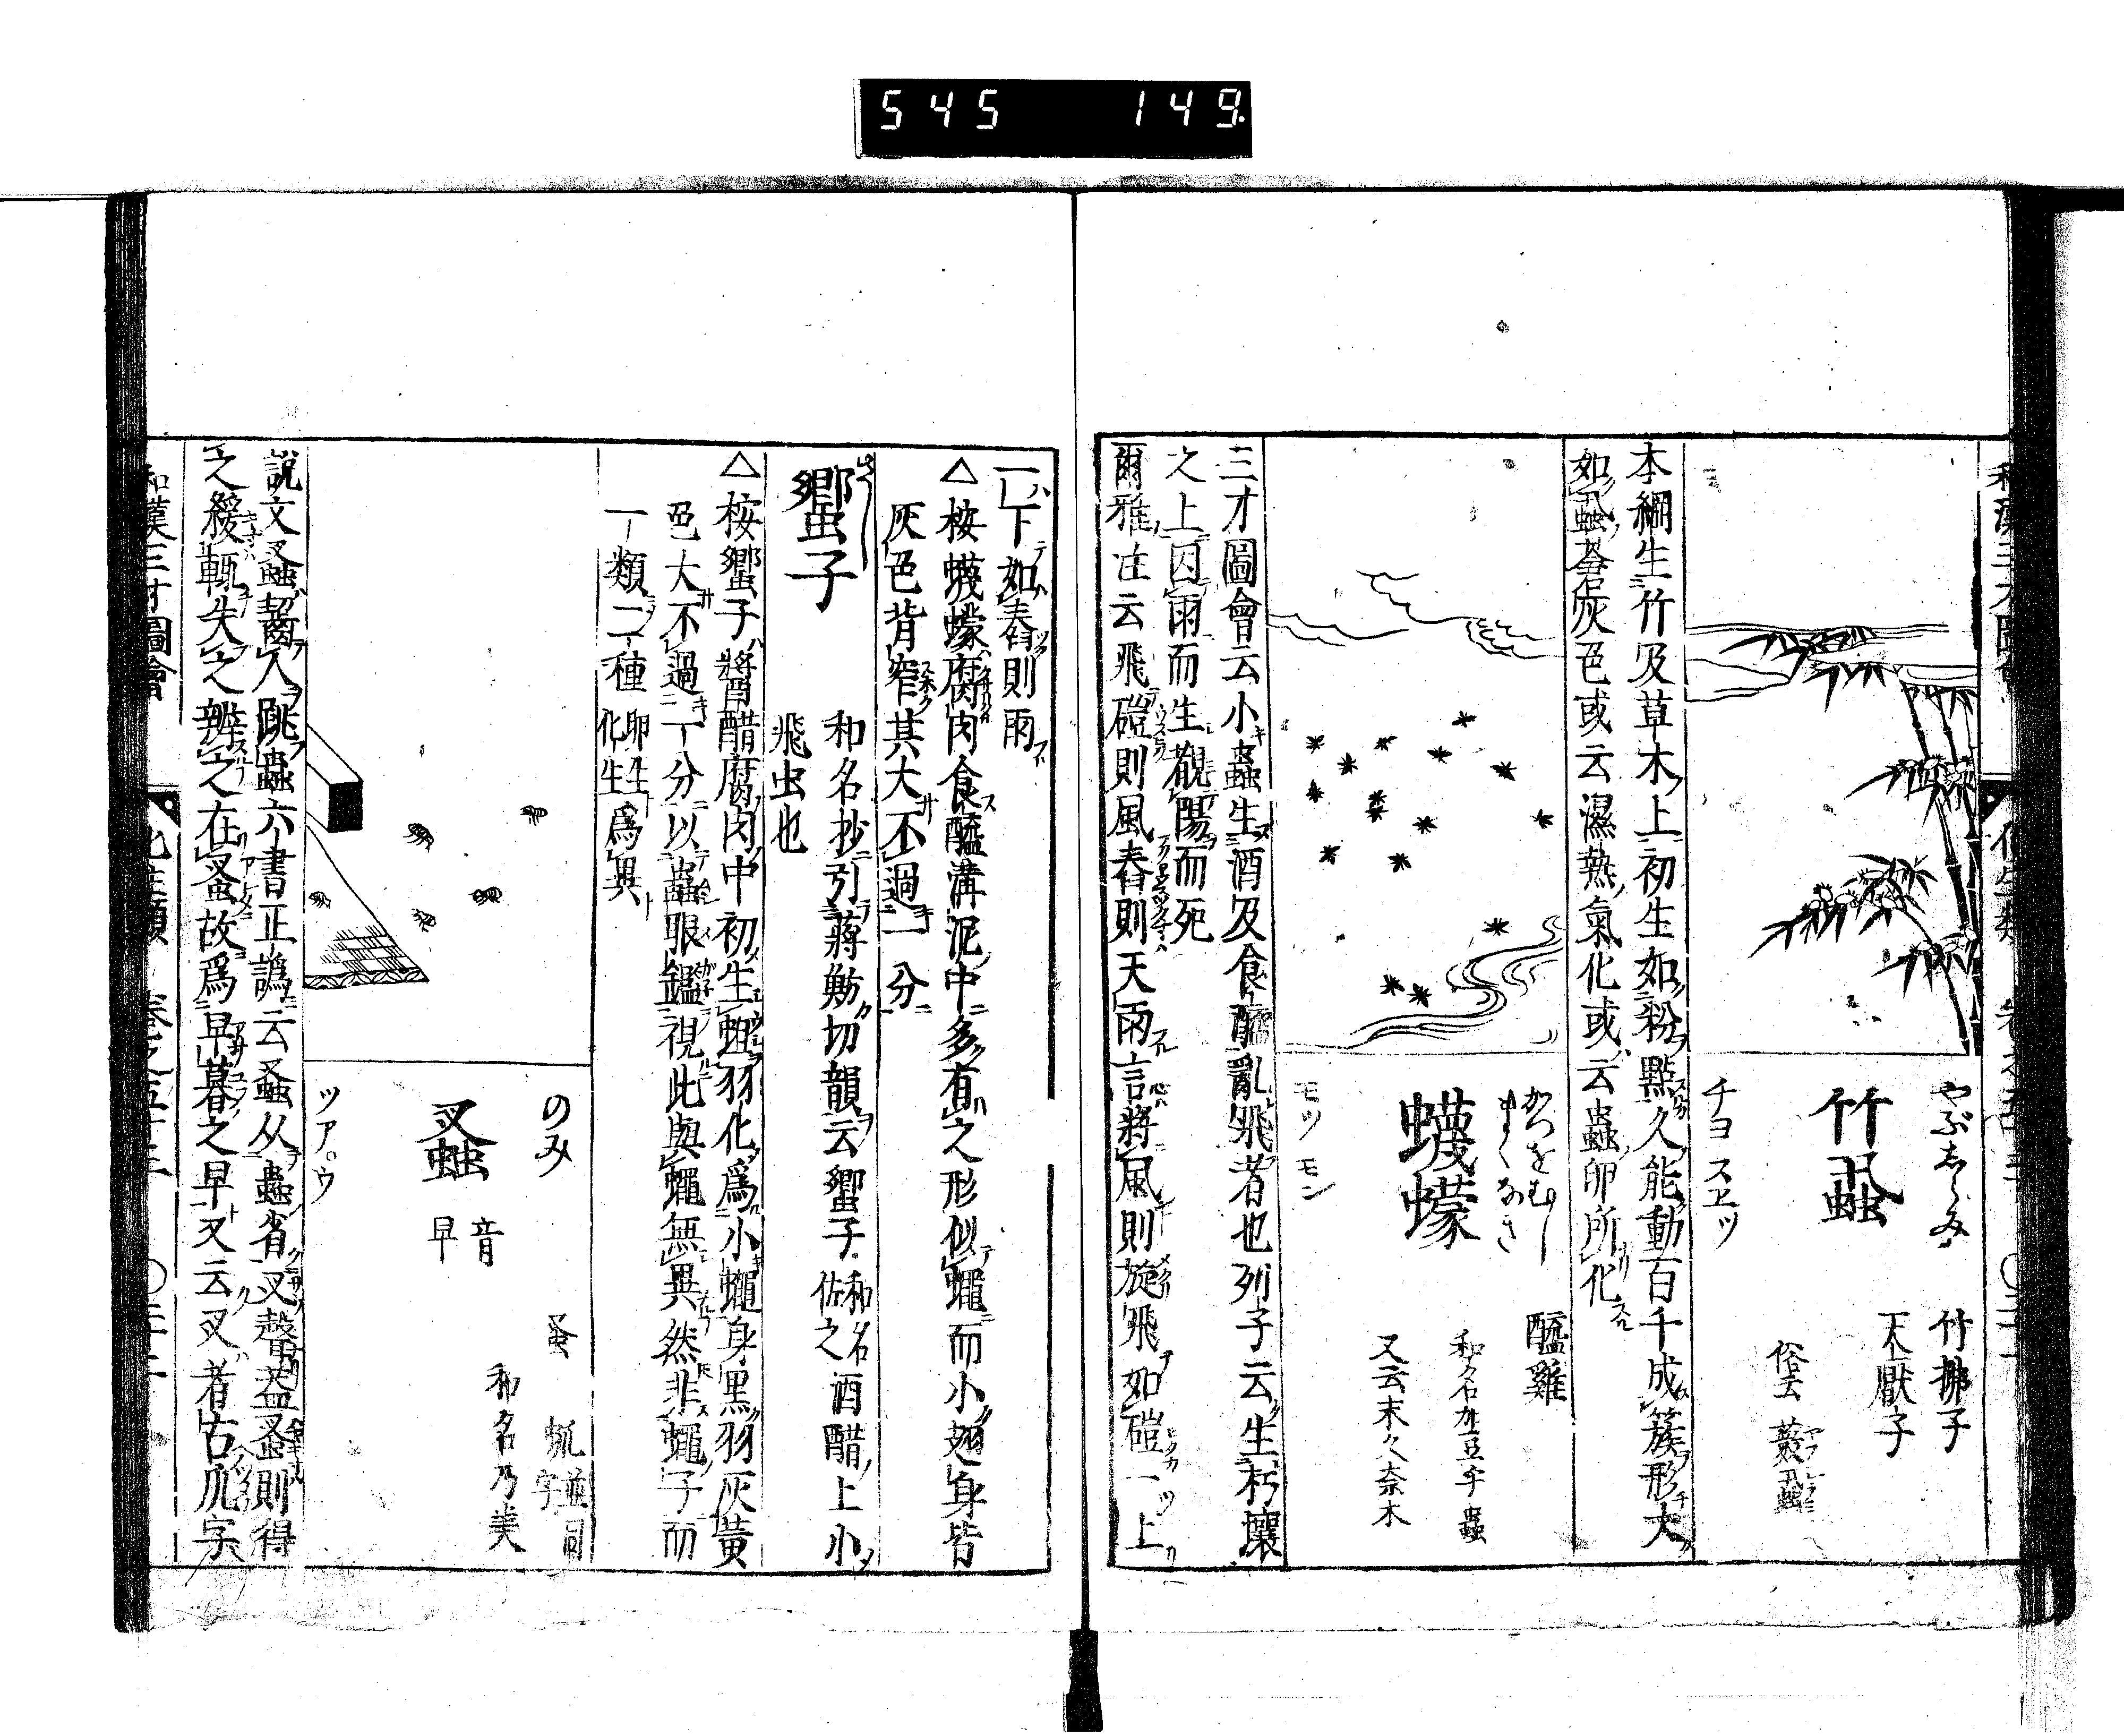 545 149
やぶしらみ
竹蝨
チヨ スヱツ
竹拂子
天厭子
俗云 藪蝨
本綱生竹及草木上初生如粉點久能動百千成簇形大
如蝨蒼灰色或云濕熱氣化或云蟲卵所化
かつをむし
まくなき
蠛蠓
モツ モン
醯雞
和名加豆乎蟲
又云末久奈木
三才圖會云小蟲生酒及食醯亂飛者也列子云生朽壤
之上因雨而生覩陽而死
爾雅註云飛磑則風舂則天雨言將風則旋飛如磑一上
一下如舂則雨
△桉蠛蠓腐肉食醯溝泥中多有之形似蠅而小翅身皆
灰色背窄其大不過一分
蠁子
和名抄引蔣魴切韻云蠁子和名佐之酒醋上小
飛虫也
△桉蠁子醬醋腐肉中初生蛆羽化爲小蠅身黑羽灰黃
色大不過一分以蟲眼鑑視此與蠅無異然非蠅子而
一類二種卵生化生爲異
のみ
蚤 音早
ツア゚ウ
蚤 蚔並同字
和名乃美
說文蚤齧人跳蟲六書正譌云蚤从蟲省叉聲葢蚤則得
之緩輒失之辨之在蚤故爲早暮之早又云叉者古爪字
和漢三才圖會 化生類 卷之五十三